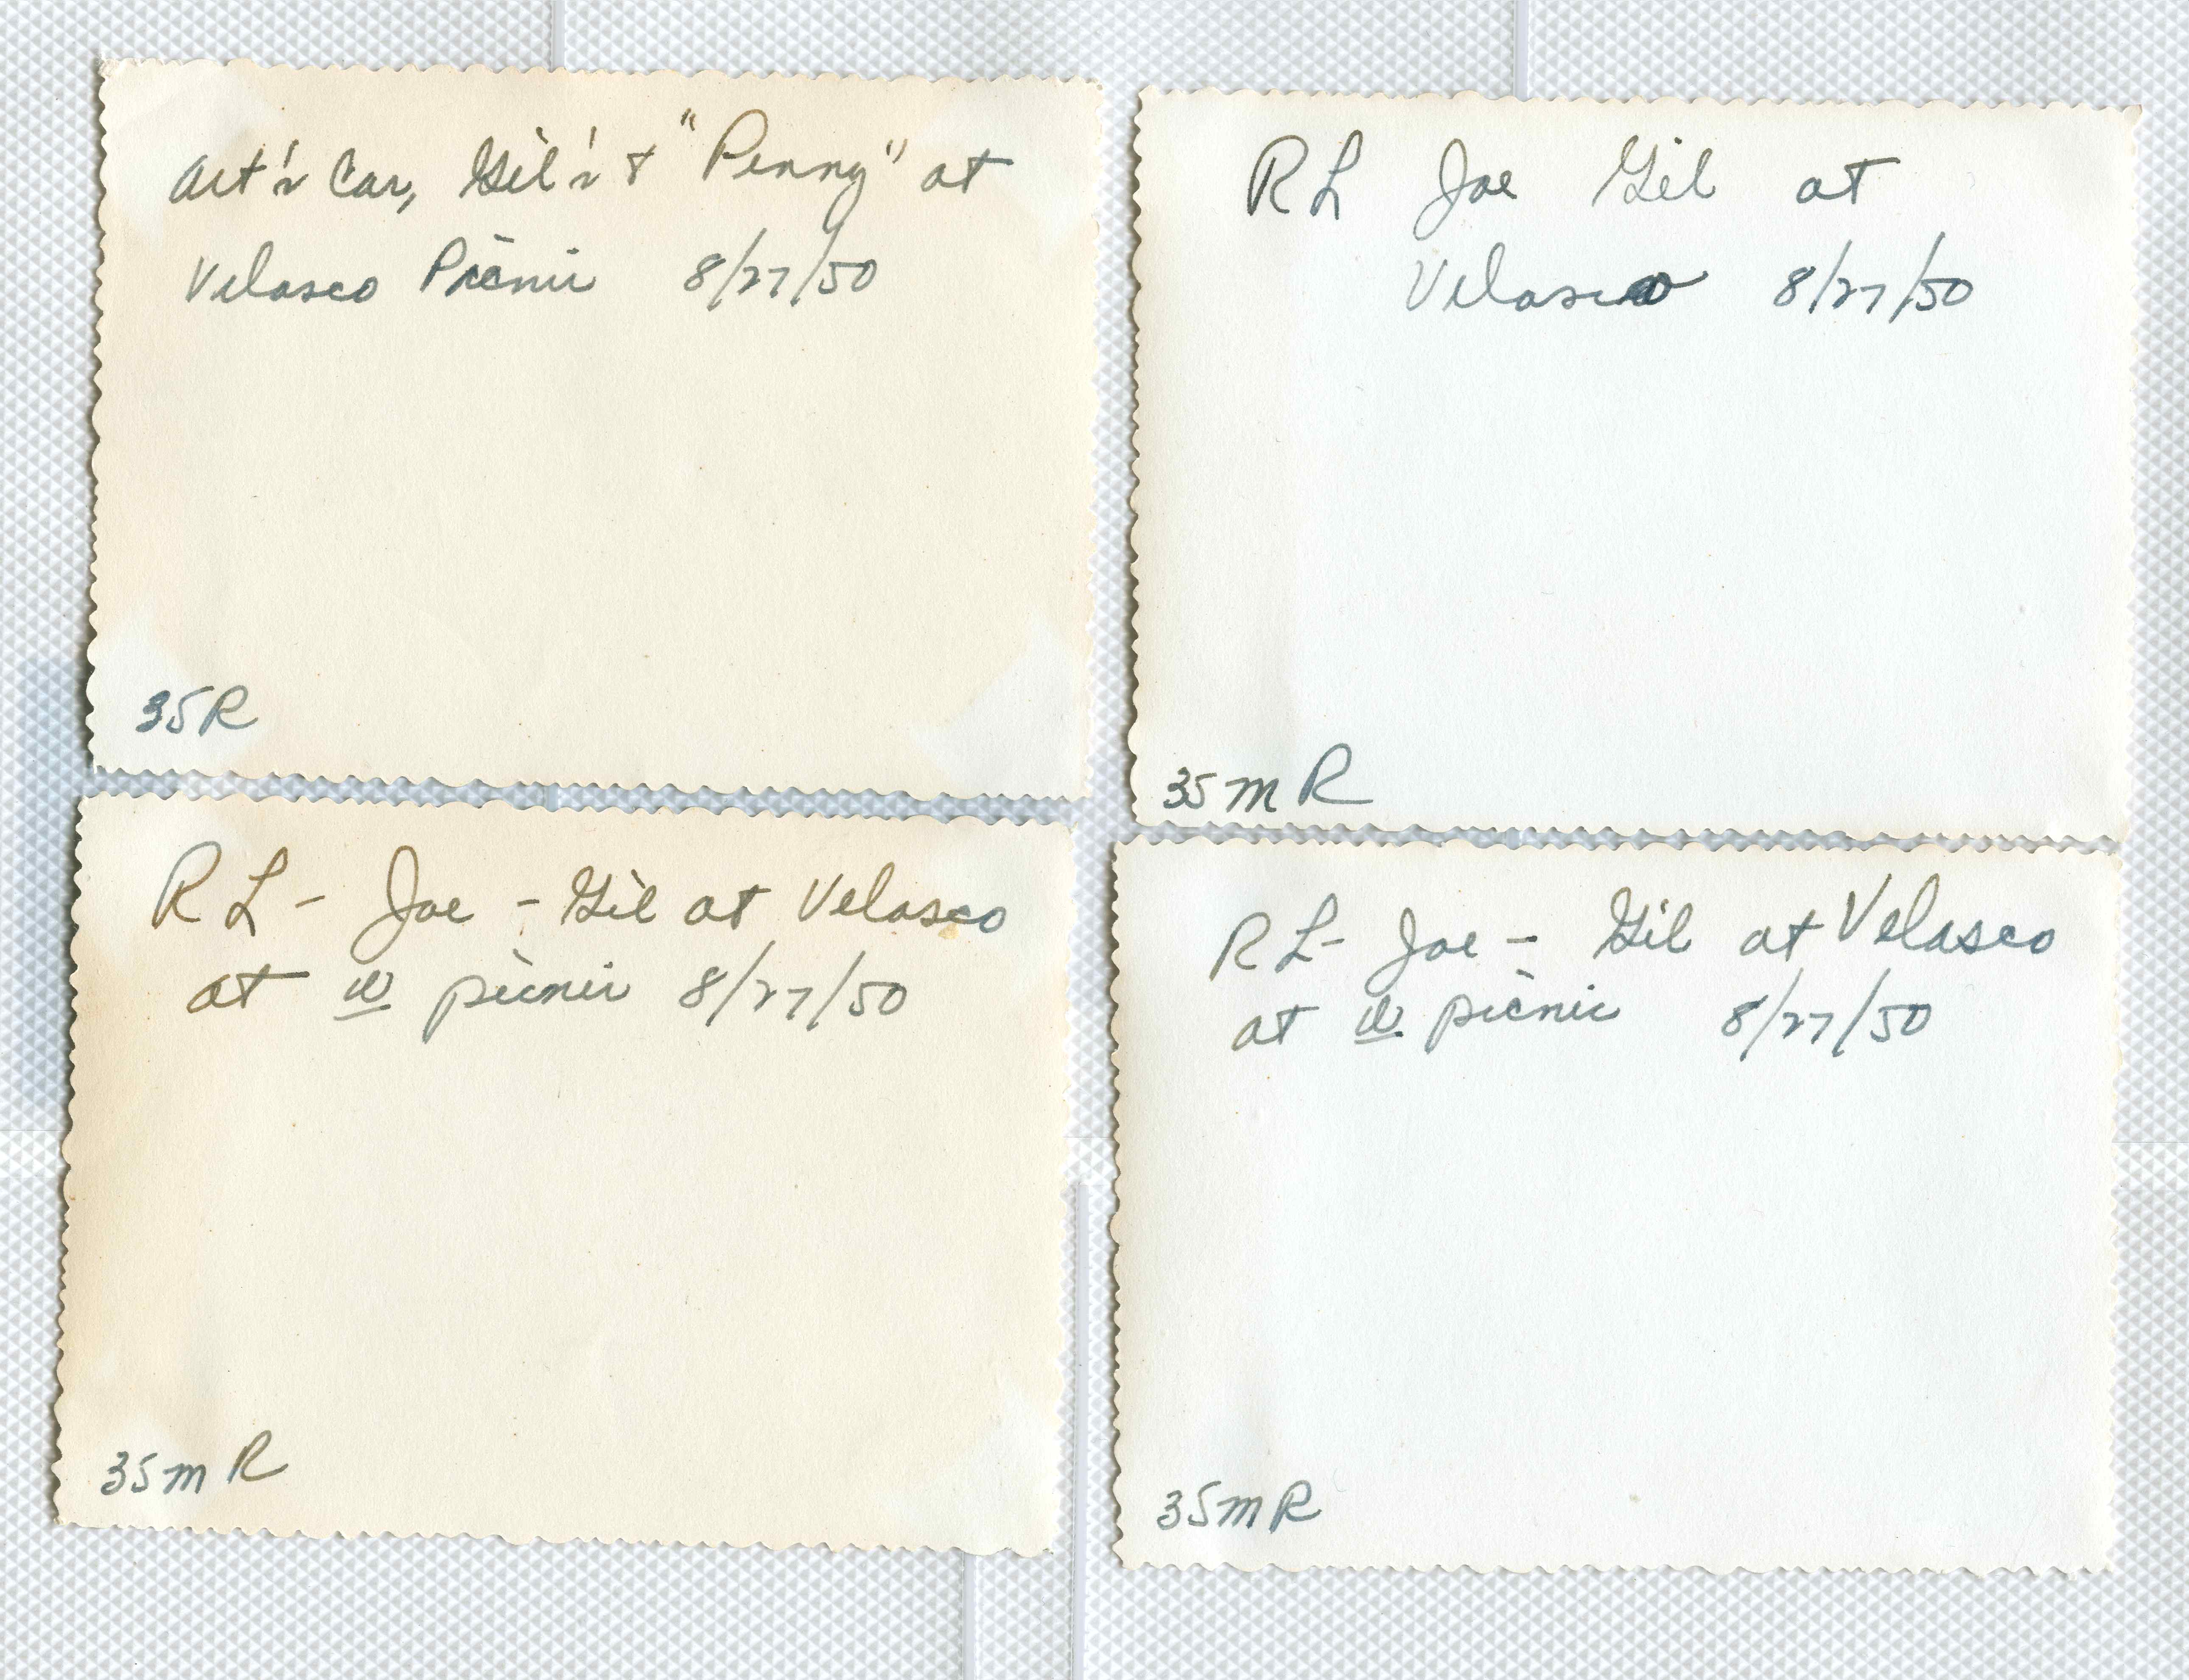 Art's Car, Gil's & "Penny" at
Velasco Picnic 8/27/50
35R
RL Joe Gil at
Velasco 8/27/50
35 m R
RL - Joe - Gil at Velasco
at picnic 8/27/50
35 m R
RL - Joe - Gil at Velasco
at picnic 8/27/50
35 m R